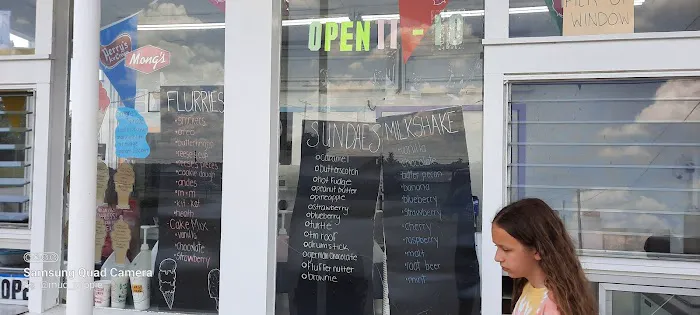 OPEN 11-10
PICK UP
WINDOW
Perry's
Mong's
FLURRIES
•snickers
•oreo
•butterfinger
•reese cup
•reese's pieces
•cookie dough
•andes
•m•m
•kit kat
•heath
-Cake Mix
•vanilla
•chocolate
•strawberry
SUNDAES
caramel
butterscotch
hot fudge
peanut butter
pineapple
strawberry
blueberry
turtle
tin roof
drumstick
german chocolate
fluffer nutter
brownie
MILKSHAKE
vanilla
chocolate
butter pecan
banana
blueberry
strawberry
cherry
raspberry
malt
root beer
mint
OPE
Samsung Quad Camera